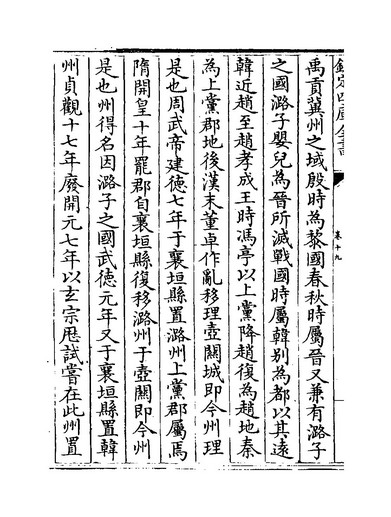 欽定四庫全書
卷十九
禹貢冀州之域殷時為黎國春秋時屬晉又兼有潞子
之國潞子嬰兒為晉所滅戰國時屬韓别為都以其遠
韓近趙至趙孝成王時馮亭以上黨降趙復為趙地秦
為上黨郡地後漢末董卓作亂移理壺關城即今州理
是也周武帝建徳七年于襄垣縣置潞州上黨郡屬焉
隋開皇十年罷郡自襄垣縣復移潞州于壺關即今州
是也州得名因潞子之國武德元年又于襄垣縣置韓
州貞觀十七年廢開元七年以玄宗厯試嘗在此州置